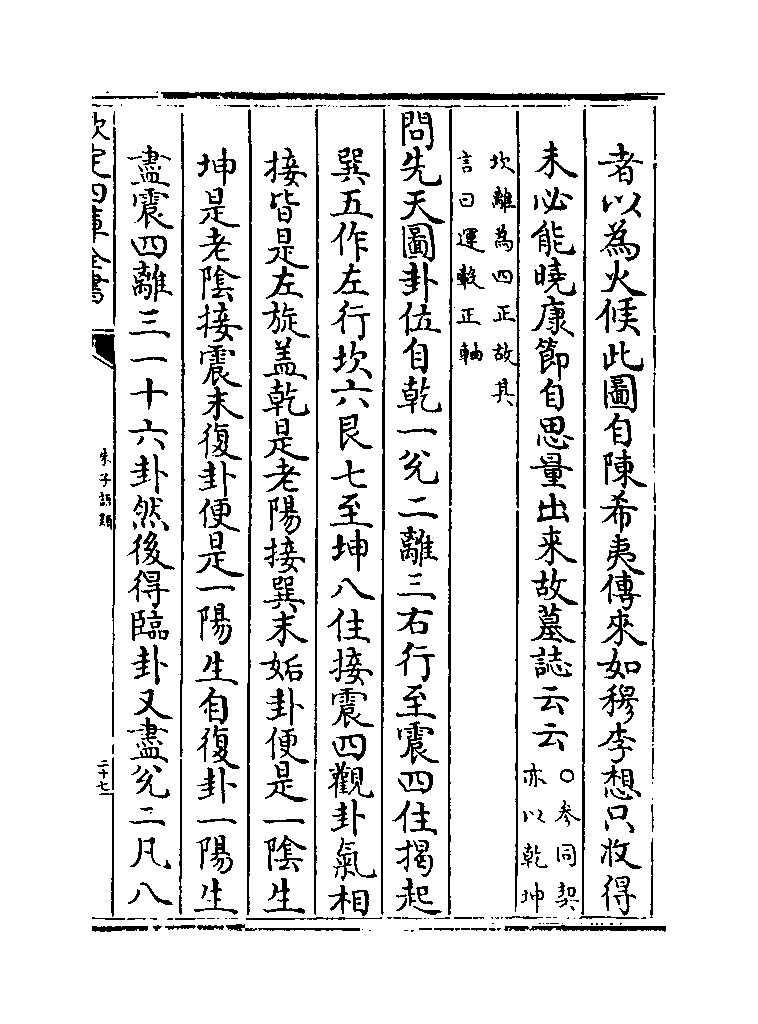 者以為火候此圖自陳希夷傳來如穆李想只收得
未必能曉康節自思量出来故墓誌云云
○參同契
亦以乾坤
坎離為四正故其
言曰運轂正軸
問先天圖卦位自乾一兊二離三右行至震四住揭起
巽五作左行坎六艮七至坤八住接震四觀卦氣相
接皆是左旋盖乾是老陽接巽末姤卦便是一隂生
坤是老隂接震末復卦便是一陽生自復卦一陽生
盡震四離三一十六卦然後得臨卦又盡兊二凡八
欽定四庫全書
朱子語類
二十七